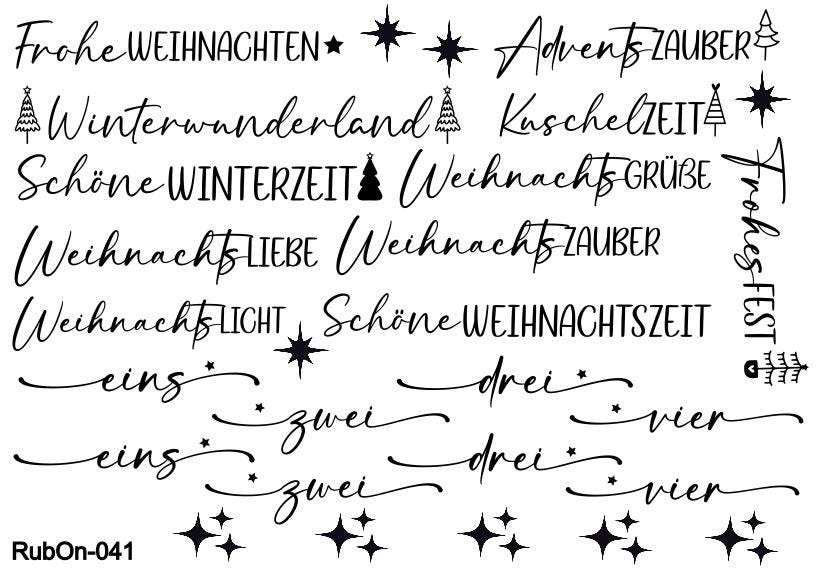 Frohe WEIHNACHTEN
AdventsZAUBER
Winterwunderland
KuschelZEIT
Schöne WINTERZEIT
WeihnachtsGRÜßE
Frohes FEST
WeihnachtsLIEBE
WeihnachtsZAUBER
WeihnachtsLICHT
Schöne WEIHNACHTSZEIT
eins
drei
zwei
vier
eins
drei
zwei
vier
RubOn-041